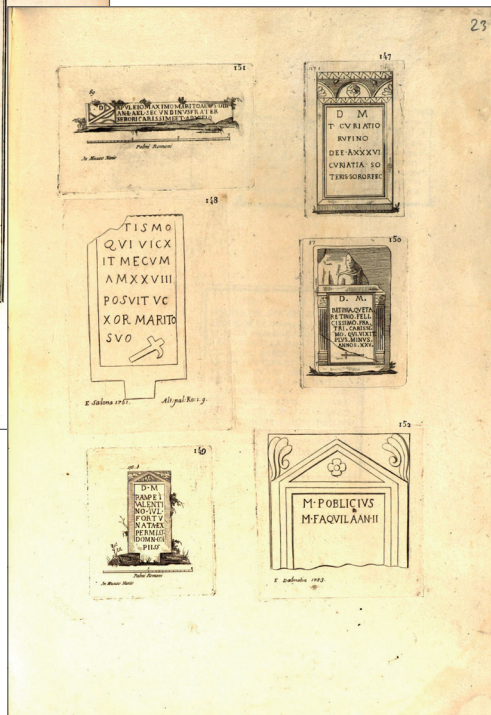 23
151
69
D APVLEIO MAXIMO MARITO
SECVNDINVS FRATER
SERORI CARISSIM
Palmi Romani
In Museo Nanio
147
D M
T CVRIATIO
RVFINO
DEF·AXXXVI
CVRIATIA·SO
TERIS·SOROR FEC
148
TISMO
QVI VICX
IT MECVM
AMXXVIII
POSVIT VC
XOR MARITO
SVO
E Salona 1761.
Alt: pal: Ro: 1. 9.
150
D. M.
RETINO. FELI
CISSIMO. FRA
TRI. CARISSI
MO. QVI. VIXIT
PLVS. MINVS.
ANNOS. XXV.
149
D·M
VALENTI
NO·IVL
FORTV
NATA·EX
PERMISS
PIISS
Palmi Romani
In Museo Nanio
152
M·POBLICIVS
M·F AQVILA AN·II
E Dalmatia